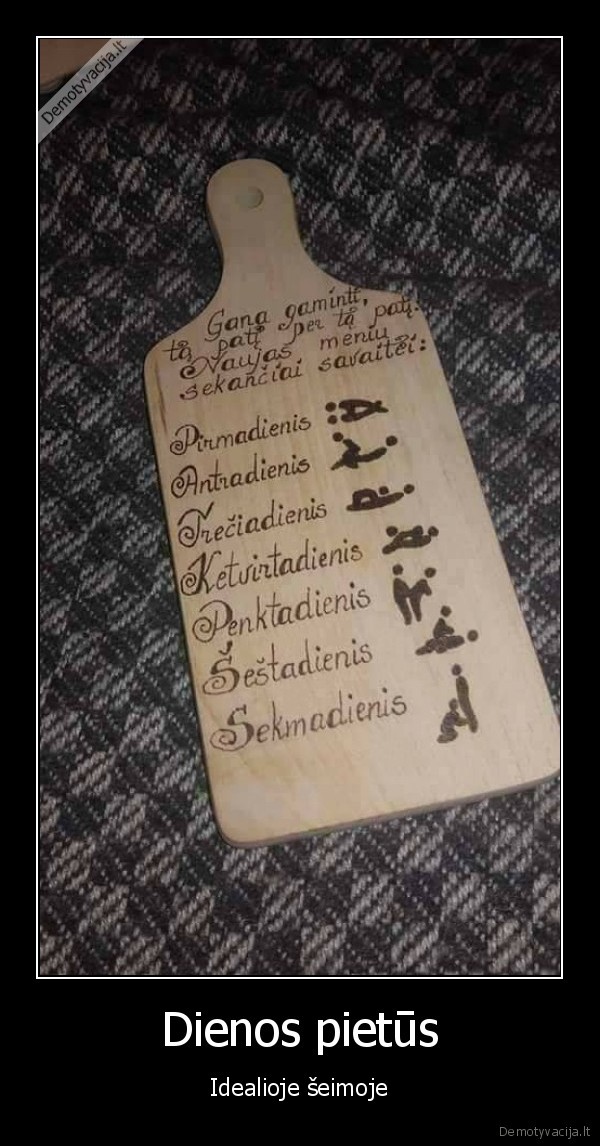 Demotyvacija.lt
Gana gaminti,
tą patį per tą patį.
Naujas meniu
sekančiai savaitei:
Pirmadienis
Antradienis
Trečiadienis
Ketvirtadienis
Penktadienis
Šeštadienis
Sekmadienis
Dienos pietūs
Idealioje šeimoje
Demotyvacija.lt